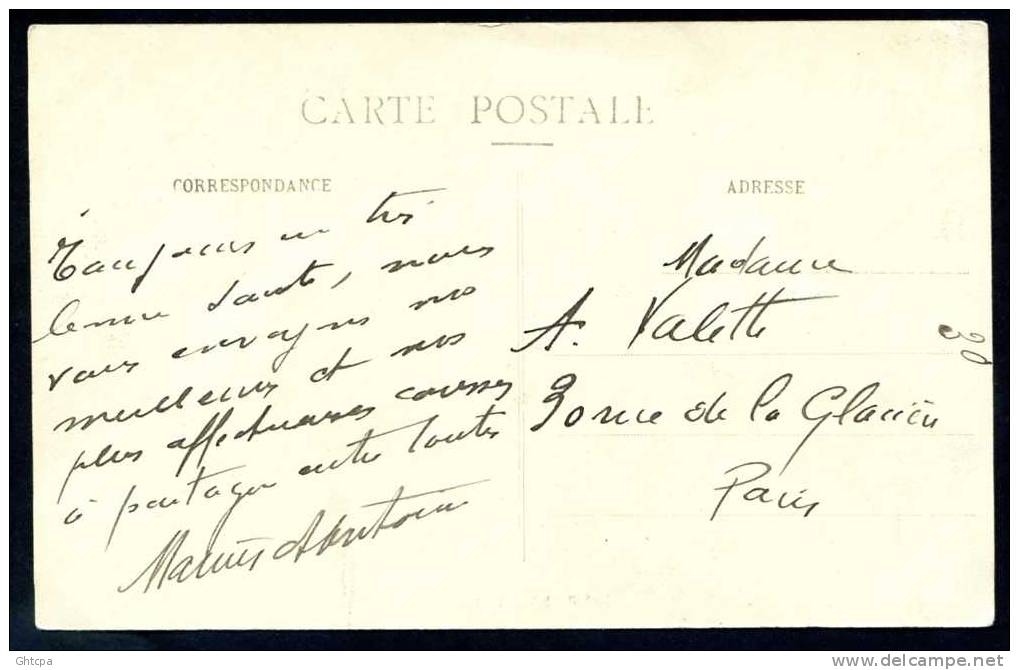 CARTE POSTALE
CORRESPONDANCE
Toujours en très
bonne santé, nous
vous envoyons nos
meilleures et nos
plus affectueuses caresses
à partager entre toutes
Marius et Antoine
ADRESSE
Madame
A. Valette
30 rue de la Glacière
Paris
Ghtcpa
www.delcampe.net